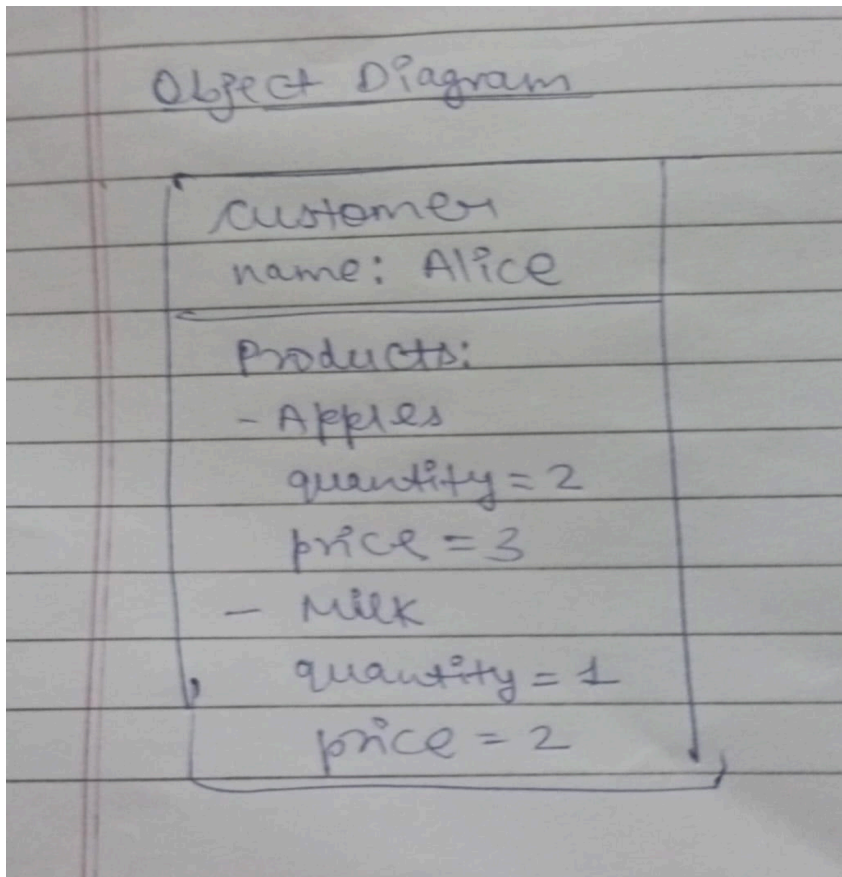 Object Diagram
customer
name: Alice
Products:
- Apples
quantity = 2
price = 3
- Milk
quantity = 1
price = 2